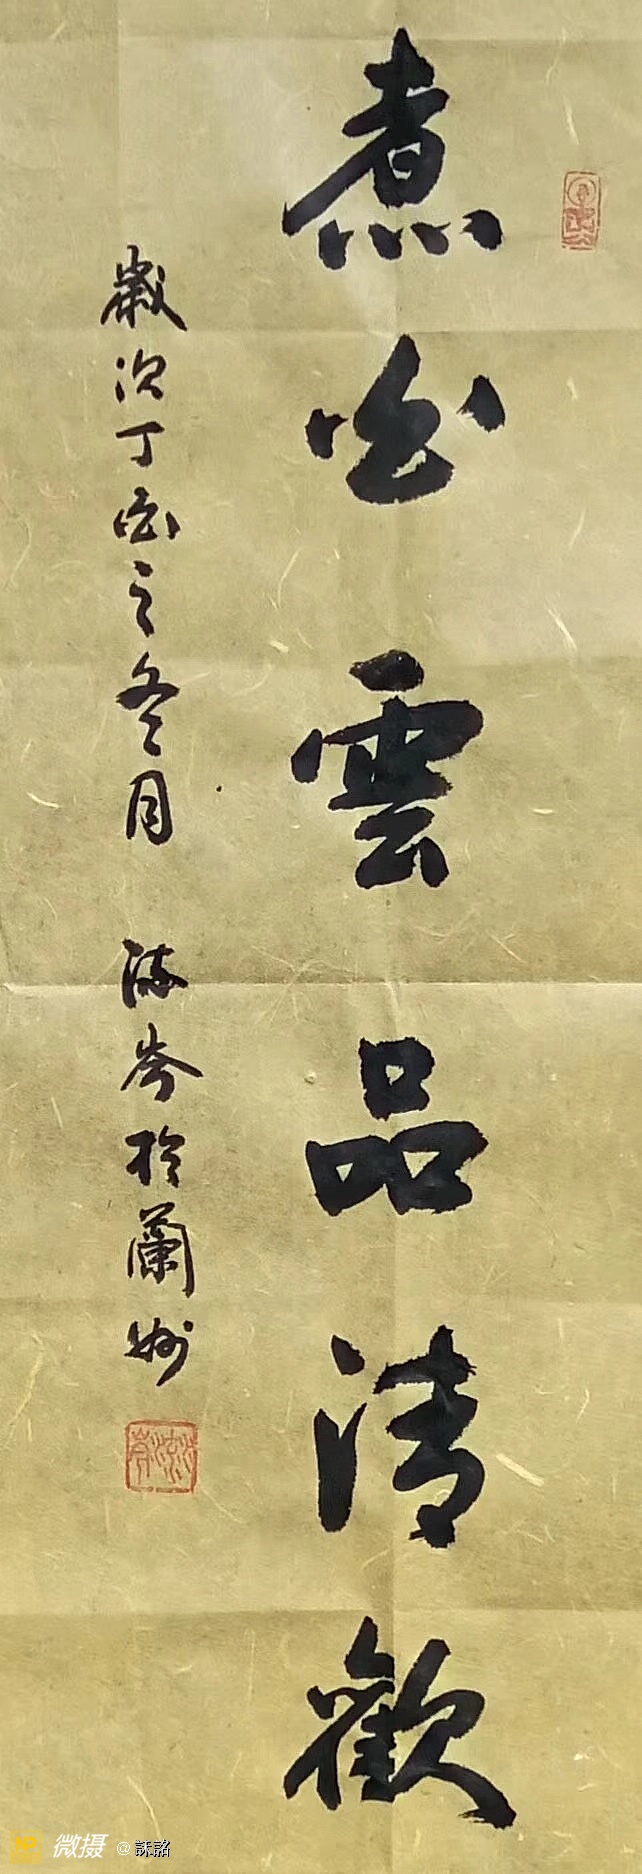 煮白雲品清歡
歲次丁酉之冬月 流岑於蘭州
微摄